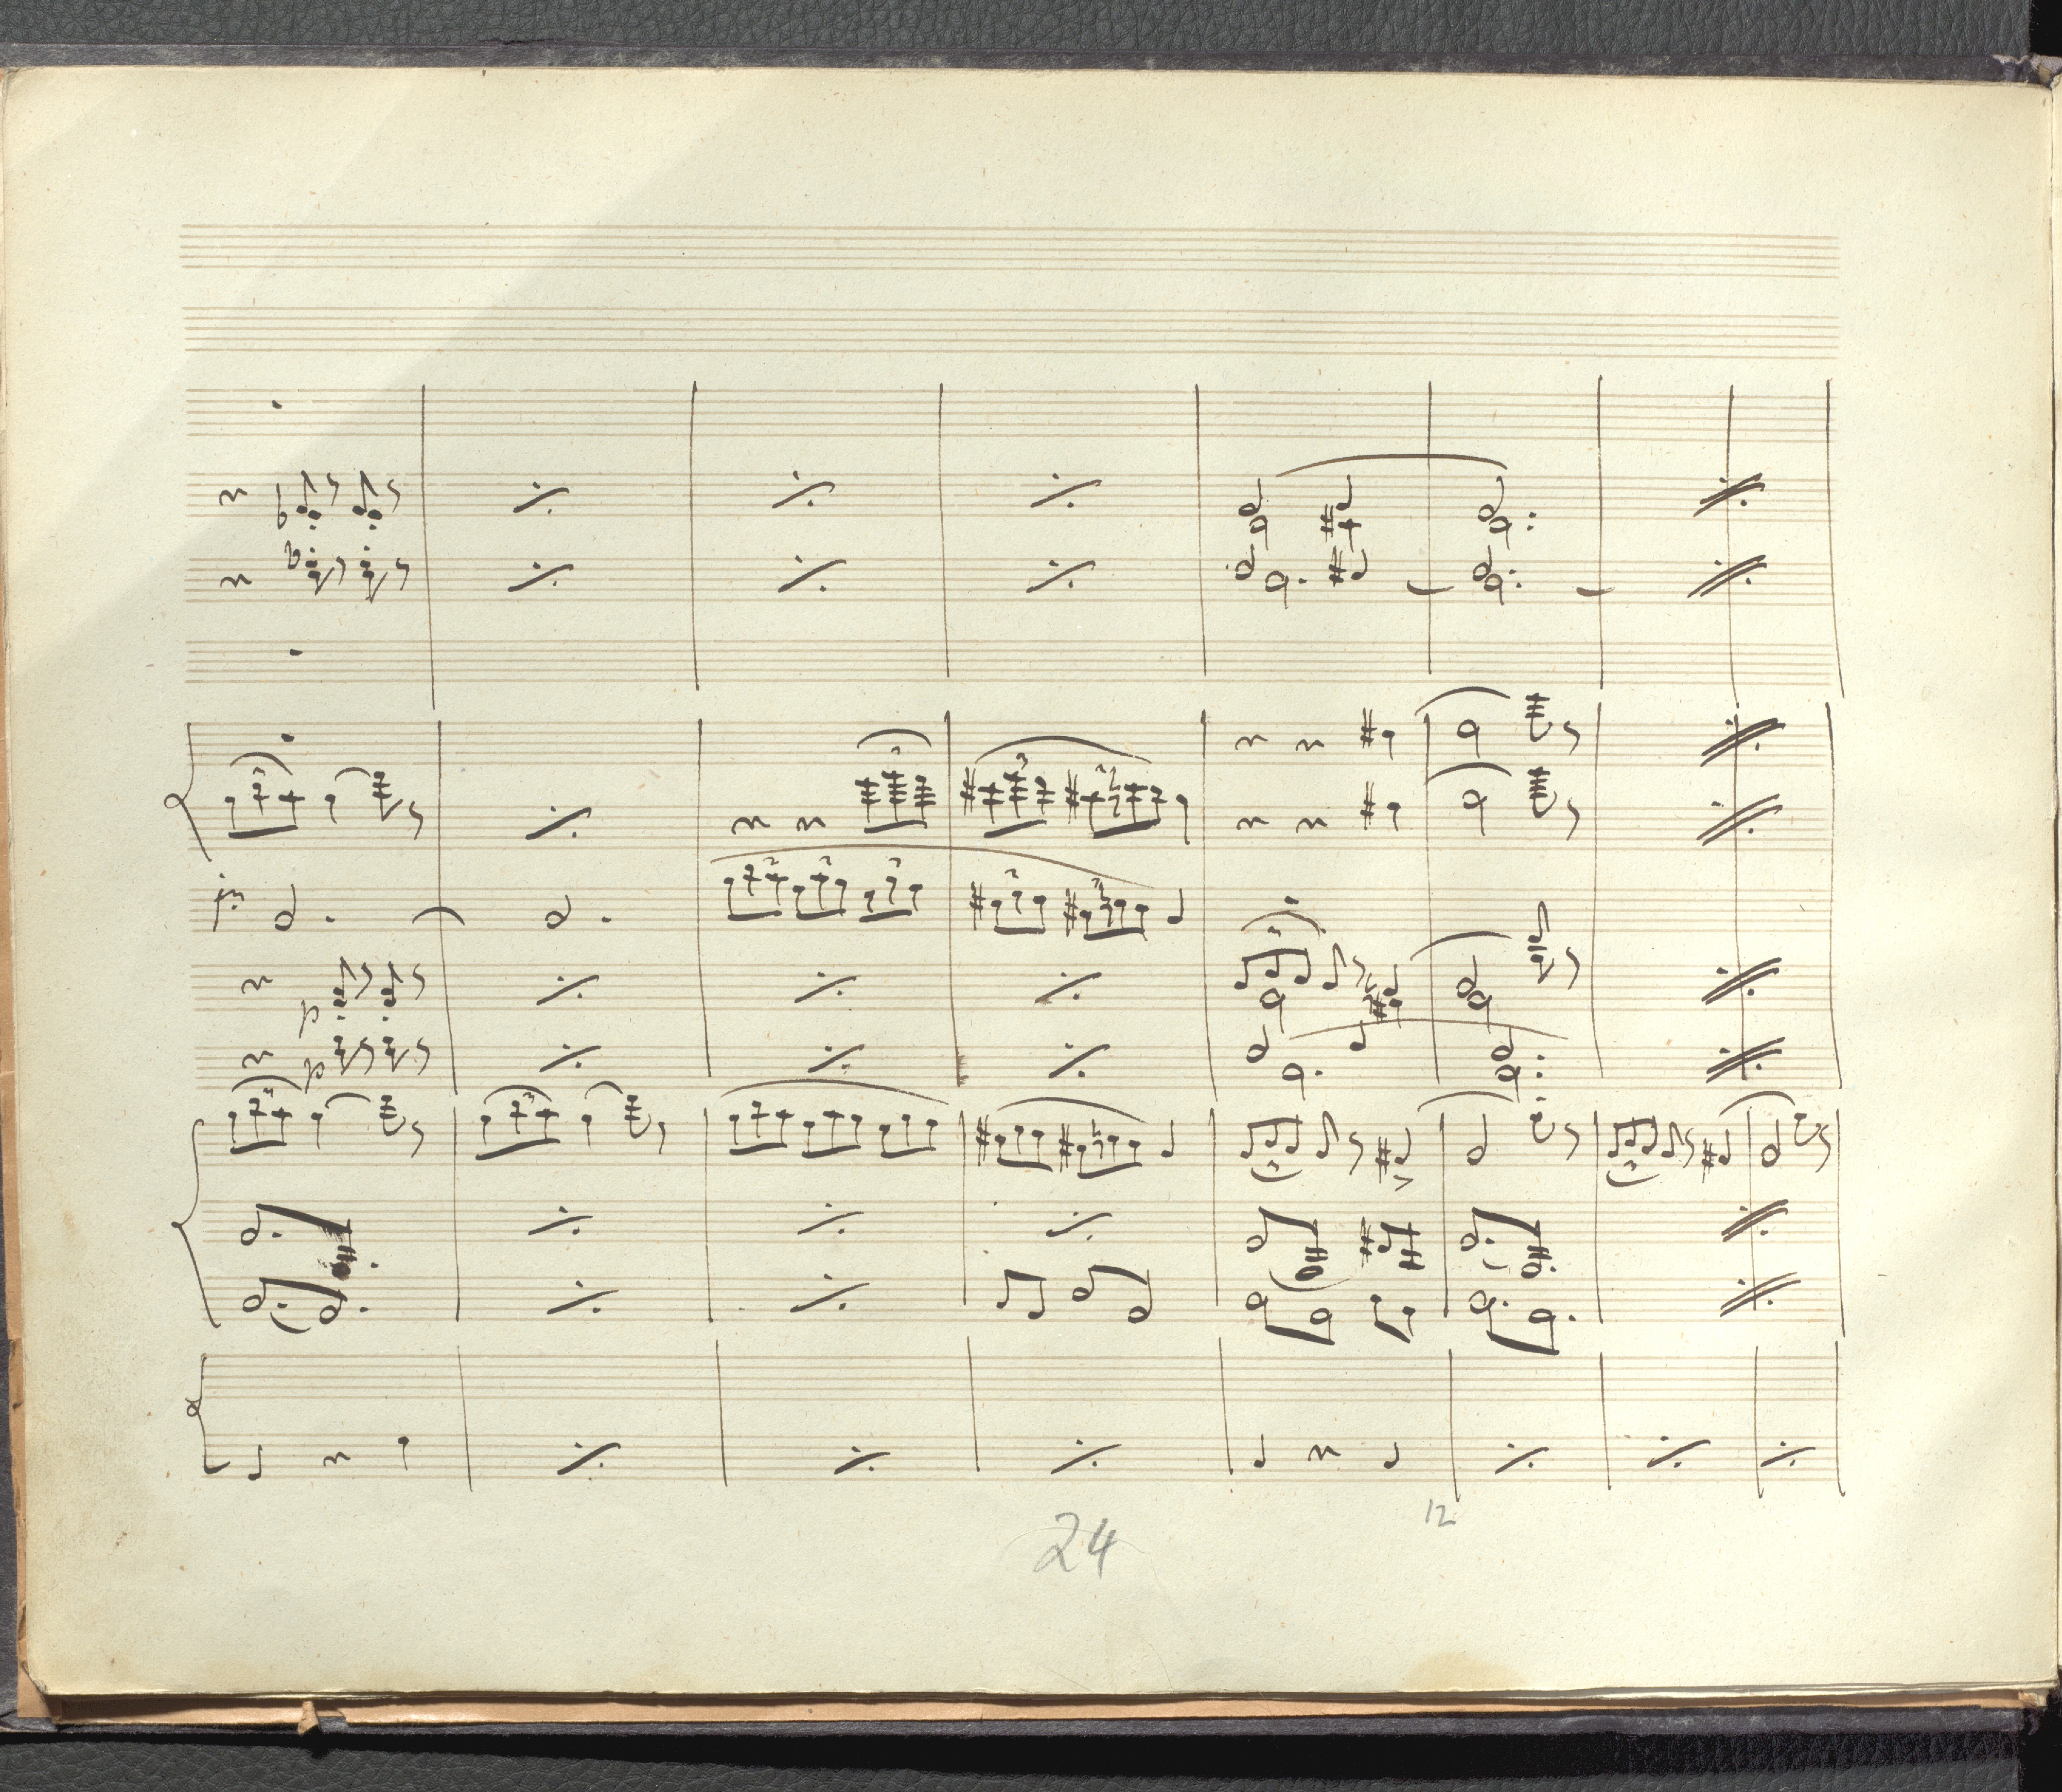 p
p
12
24